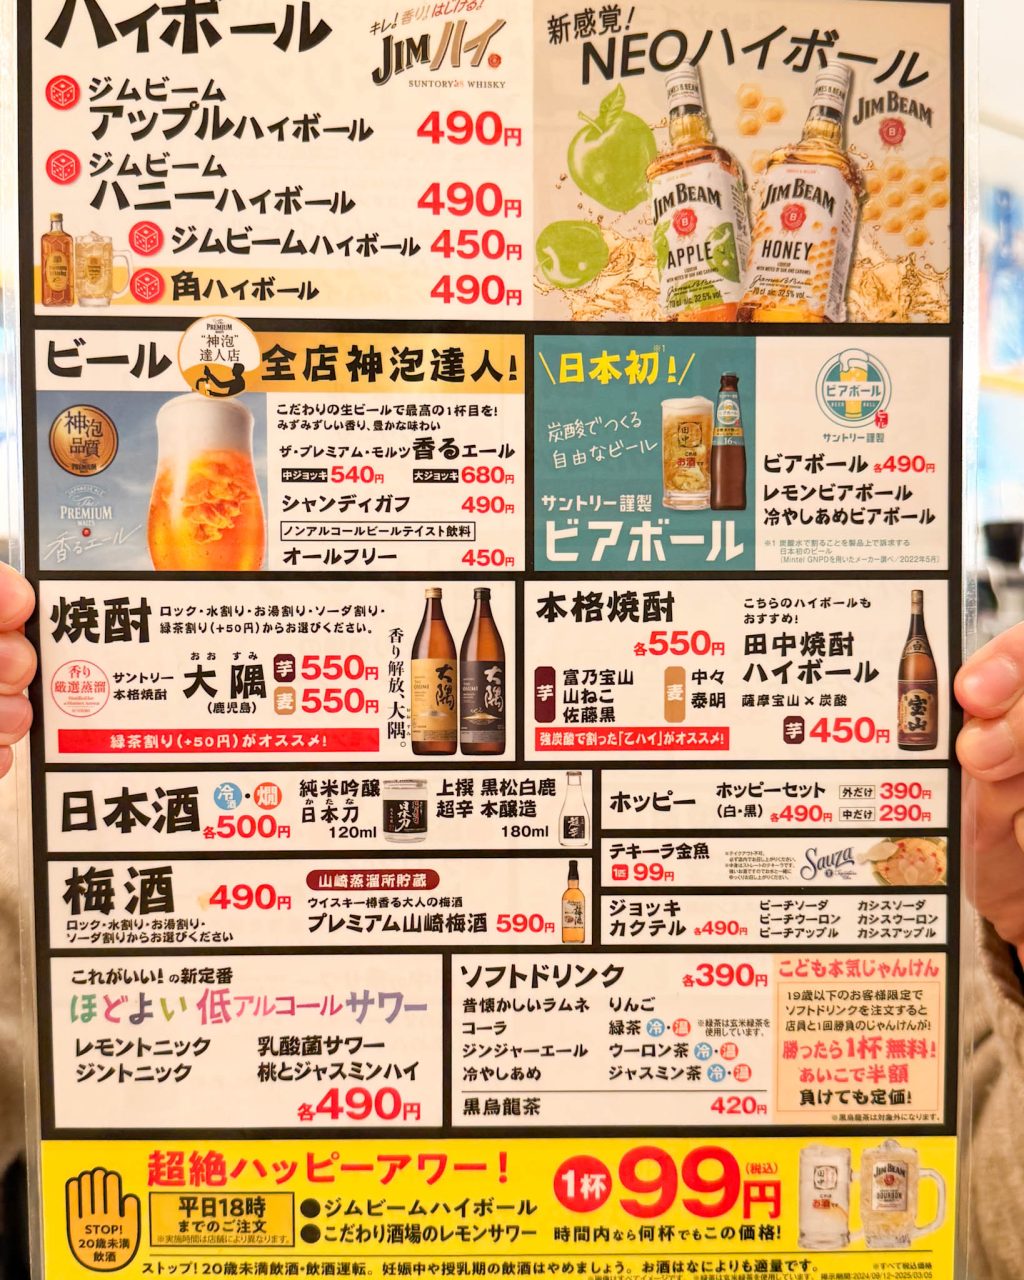 ハイボール
キレ!香り!はじける!
JIMハイ
SUNTORY WHISKY
ジムビーム
アップルハイボール 490円
ジムビーム
ハニーハイボール 490円
ジムビームハイボール 450円
角ハイボール 490円
新感覚!
NEOハイボール
JIM BEAM
JIM BEAM
APPLE
JIM BEAM
HONEY
ビール
The PREMIUM MALT'S
"神泡"
達人店
全店神泡達人!
神泡品質
The PREMIUM MALT'S
香るエール
こだわりの生ビールで最高の1杯目を!
みずみずしい香り、豊かな味わい
ザ・プレミアム・モルツ 香るエール
中ジョッキ 540円 大ジョッキ 680円
シャンディガフ 490円
ノンアルコールビールテイスト飲料
オールフリー 450円
日本初!※1
炭酸でつくる
自由なビール
サントリー謹製
ビアボール
ビアボール
BEER BALL
サントリー謹製
ビアボール 各490円
レモンビアボール
冷やしあめビアボール
※1 炭酸水で割ることを製品上で訴求する
日本初のビール
(Mintel GNPDを用いたメーカー調べ/2022年5月)
焼酎
ロック・水割り・お湯割り・ソーダ割り・
緑茶割り(+50円)からお選びください。
香り
厳選蒸溜
サントリー
本格焼酎
おおすみ
大隅
(鹿児島)
芋 550円
麦 550円
香り解放、大隅。
緑茶割り(+50円)がオススメ!
本格焼酎
各550円
芋 富乃宝山
山ねこ
佐藤黒
麦 中々
泰明
強炭酸で割った「乙ハイ」がオススメ!
こちらのハイボールも
おすすめ!
田中焼酎
ハイボール
薩摩宝山×炭酸
芋 450円
宝山
日本酒
冷酒・燗
各500円
純米吟醸
かたな
日本刀
120ml
上撰 黒松白鹿
超辛 本醸造
180ml
ホッピー
ホッピーセット
(白・黒) 各490円
外だけ 390円
中だけ 290円
テキーラ金魚
1匹 99円
Sauza
梅酒 490円
ロック・水割り・お湯割り・
ソーダ割りからお選びください
山崎蒸溜所貯蔵
ウイスキー樽香る大人の梅酒
プレミアム山崎梅酒 590円
ジョッキ
カクテル 各490円
ピーチソーダ カシスソーダ
ピーチウーロン カシスウーロン
ピーチアップル カシスアップル
これがいい!の新定番
ほどよい低アルコールサワー
レモントニック 乳酸菌サワー
ジントニック 桃とジャスミンハイ
各490円
ソフトドリンク 各390円
昔懐かしいラムネ りんご
コーラ 緑茶 冷・温 ※緑茶は玄米緑茶を使用しています。
ジンジャーエール ウーロン茶 冷・温
冷やしあめ ジャスミン茶 冷・温
黒烏龍茶 420円
こども本気じゃんけん
19歳以下のお客様限定で
ソフトドリンクを注文すると
店員と1回勝負のじゃんけんが!
勝ったら1杯無料!
あいこで半額
負けても定価!
※黒烏龍茶は対象外になります。
STOP!
20歳未満
飲酒
超絶ハッピーアワー!
平日18時
までのご注文
※実施時間は店舗により異なります。
●ジムビームハイボール
●こだわり酒場のレモンサワー
1杯 99円(税込)
時間内なら何杯でもこの価格!
ストップ!20歳未満飲酒・飲酒運転。妊娠中や授乳期の飲酒はやめましょう。お酒はなによりも適量です。
※すべて税込価格
※画像はすべてイメージです。 ※緑茶は玄米緑茶を使用しています。 掲示期間:2024/08/12~2025/03/05